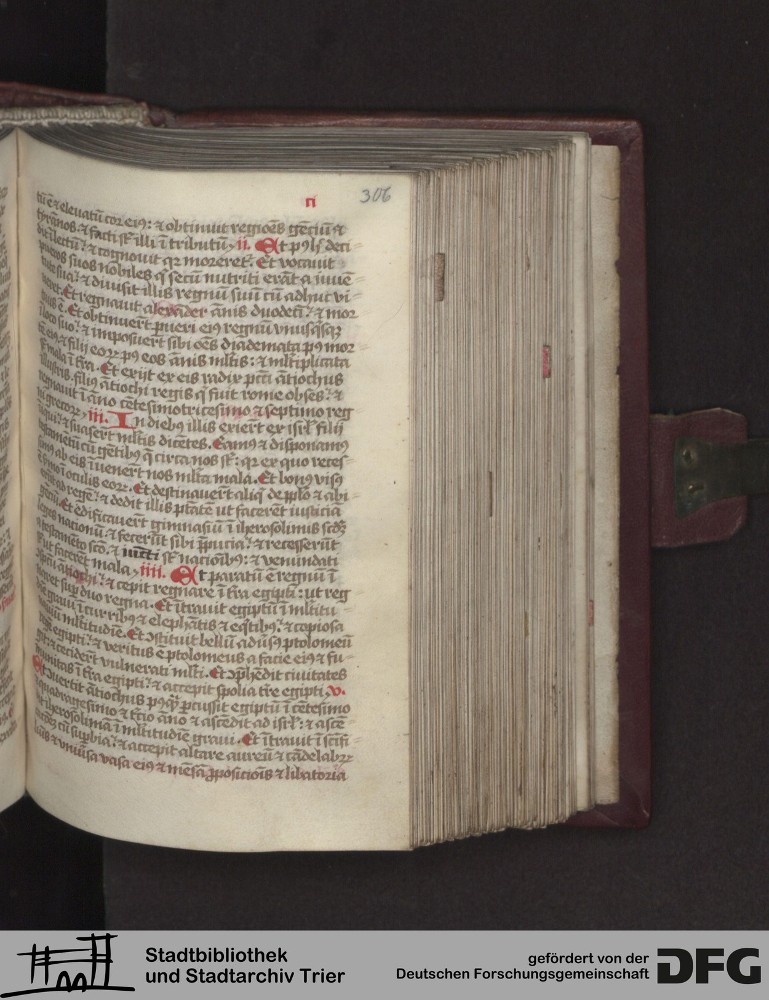 n 306
tū ē & elevatū cor eiꝰ: & obtinuit regiōes gēciū &
tyrānos & facti sūt illi ī tributū. ii. Et pꝰ hec deci-
dit ī lectū: & cognovit qr moreret. Et vocavit
pueros suos nobiles q̄ secū nutriti erāt a iuvē-
tute sua: & divisit illis regnū suū cū adhuc vi-
veret. Et regnavit alexāder ānis duodecī: & mor
tuus ē. Et obtinuert pueri eiꝰ regnū unusqsqꝫ
ī loco suo: & imposuert sibi oēs diademata pꝰ mor
tē eiꝰ & filij eorꝝ pꝰ eos ānis mltis: & mltiplicata
sūt mala ī tʳra. Et exijt ex eis radix pctī ātiochus
illustris. filiꝰ ātiochi regis q̄ fuit rome obses: &
regnavit ī āno cētesimotricesimo & septimo reg
ni grecorꝝ. iii. In diebꝰ illis exiert ex isrl filij
iniqui: & suasert mltis dicētes. Eamꝰ & disponamꝰ
testamētū cū gētibꝰ q̄ circa nos sūt: qr ex quo reces-
simꝰ ab eis īvenert nos mlta mala. Et bonꝰ visꝰ
ē smo ī oculis eorꝝ. Et destinavert aliq̄ de pplo & abi-
ert ad regē: & dedit illis ptātē ut facerēt iusticiā
gētiū. Et edificavert gimnasiū ī iherosolimis scdꝫ
leges nationū: & fecerūt sibi ppucia: & recesserūt
a testamēto scō. & iuncti sūt nacionibꝰ: & venundati
sūt ut facerēt mala. iiii. Et paratū ē regnū ī
ꝯspctū ātiochi: & cepit regnare ī tʳra egipti: ut reg
naret sup duo regna. Et ītravit egiptū ī mltitu-
dīe gravi ī curribꝰ & elephātis & eqtibꝰ: & copiosa
naviū mltitudīe. Et ꝯstituit bellū advsꝰ ptolomeū
regē egipti: & veritus ē ptolomeus a facie eiꝰ & fu-
git: & cecidert vulnerati mlti. Et ꝯphēdit civitates
munitas ī tʳra egipti: & accepit spolia tʳre egipti. v.
Et ꝯvertit ātiochus pꝰqꝫ pcussit egiptū ī cētesimo
& quadragesimo & tʳcio āno & ascēdit ad isrl: & ascē-
dit iherosolimā ī mltitudīe gravi. Et ītravit ī scīfi-
cacōem cū supbia: & accepit altare aureū & cādelabrꝝ
luīs & univsa vasa eiꝰ & mēsā pposicioīs & libatoria
Stadtbibliothek
und Stadtarchiv Trier
gefördert von der
Deutschen Forschungsgemeinschaft
DFG